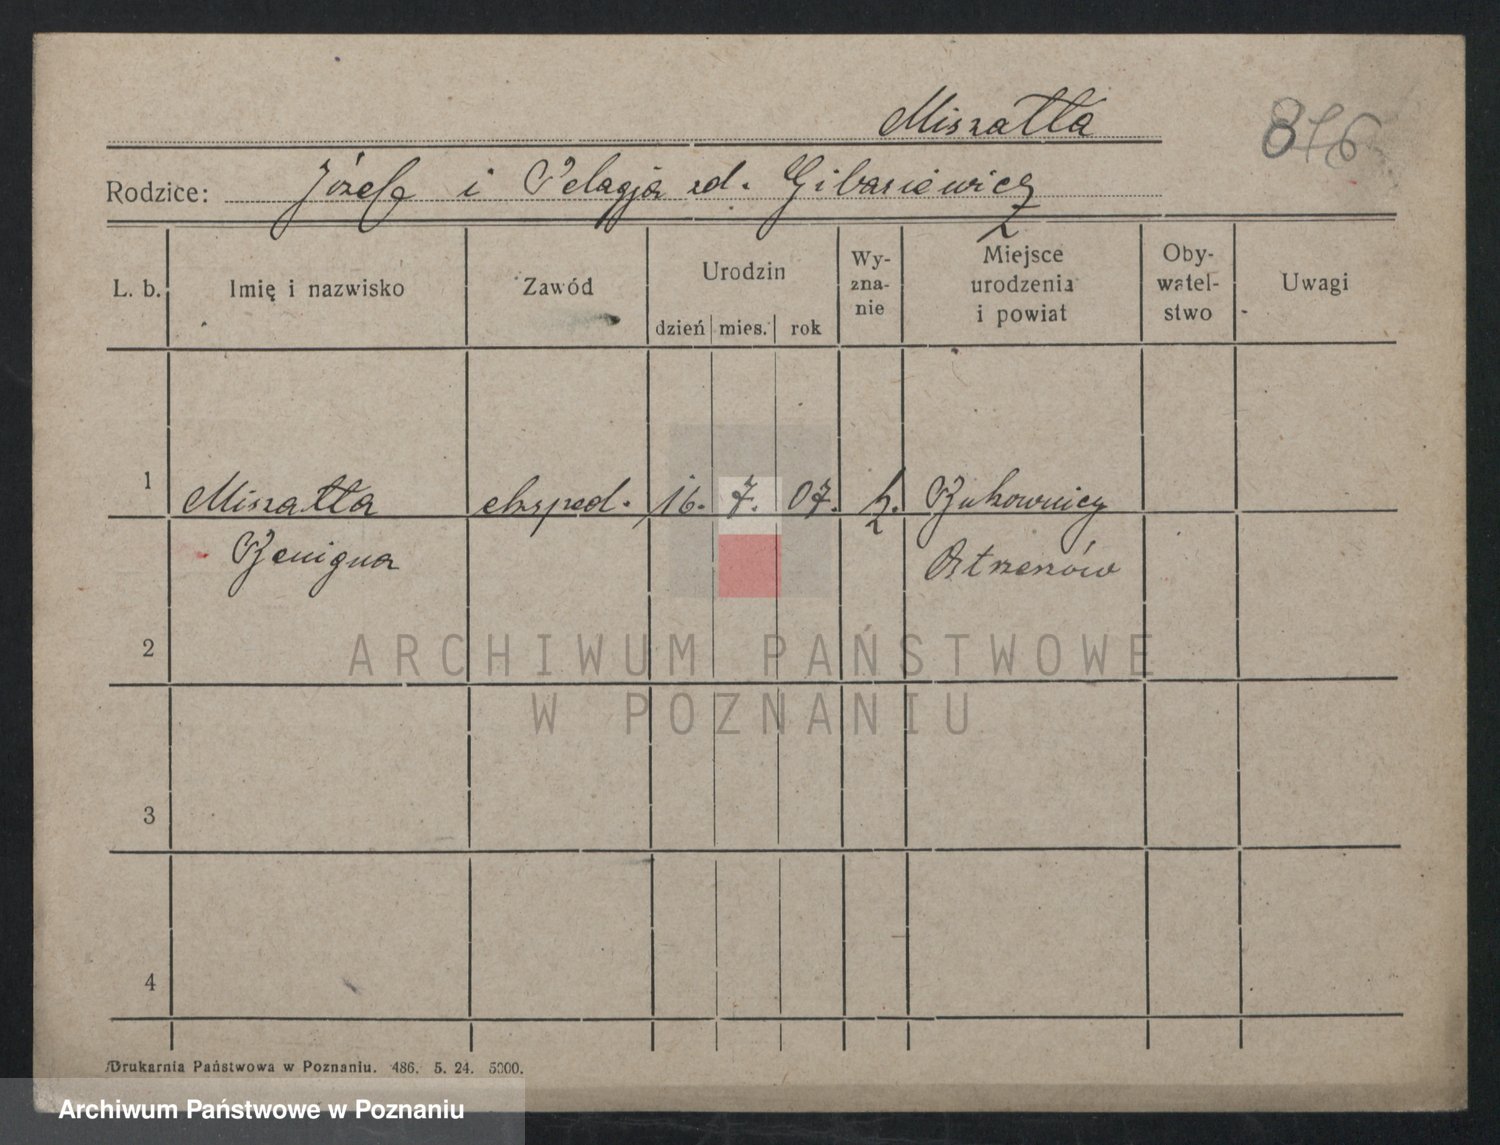 Miszałła
876
Rodzice: Józef i Pelagja zd. Gibasiewicz
L. b. Imię i nazwisko Zawód Urodzin dzień mies. rok Wy-zna-nie Miejsce urodzenia i powiat Oby-watel-stwo Uwagi
1 Miszałła eksped. 16. 7. 07. k. Bukownicy
Benigna Ostrzeszów
2
ARCHIWUM PAŃSTWOWE
W POZNANIU
3
4
Drukarnia Państwowa w Poznaniu. 486. 5. 24. 5000.
Archiwum Państwowe w Poznaniu